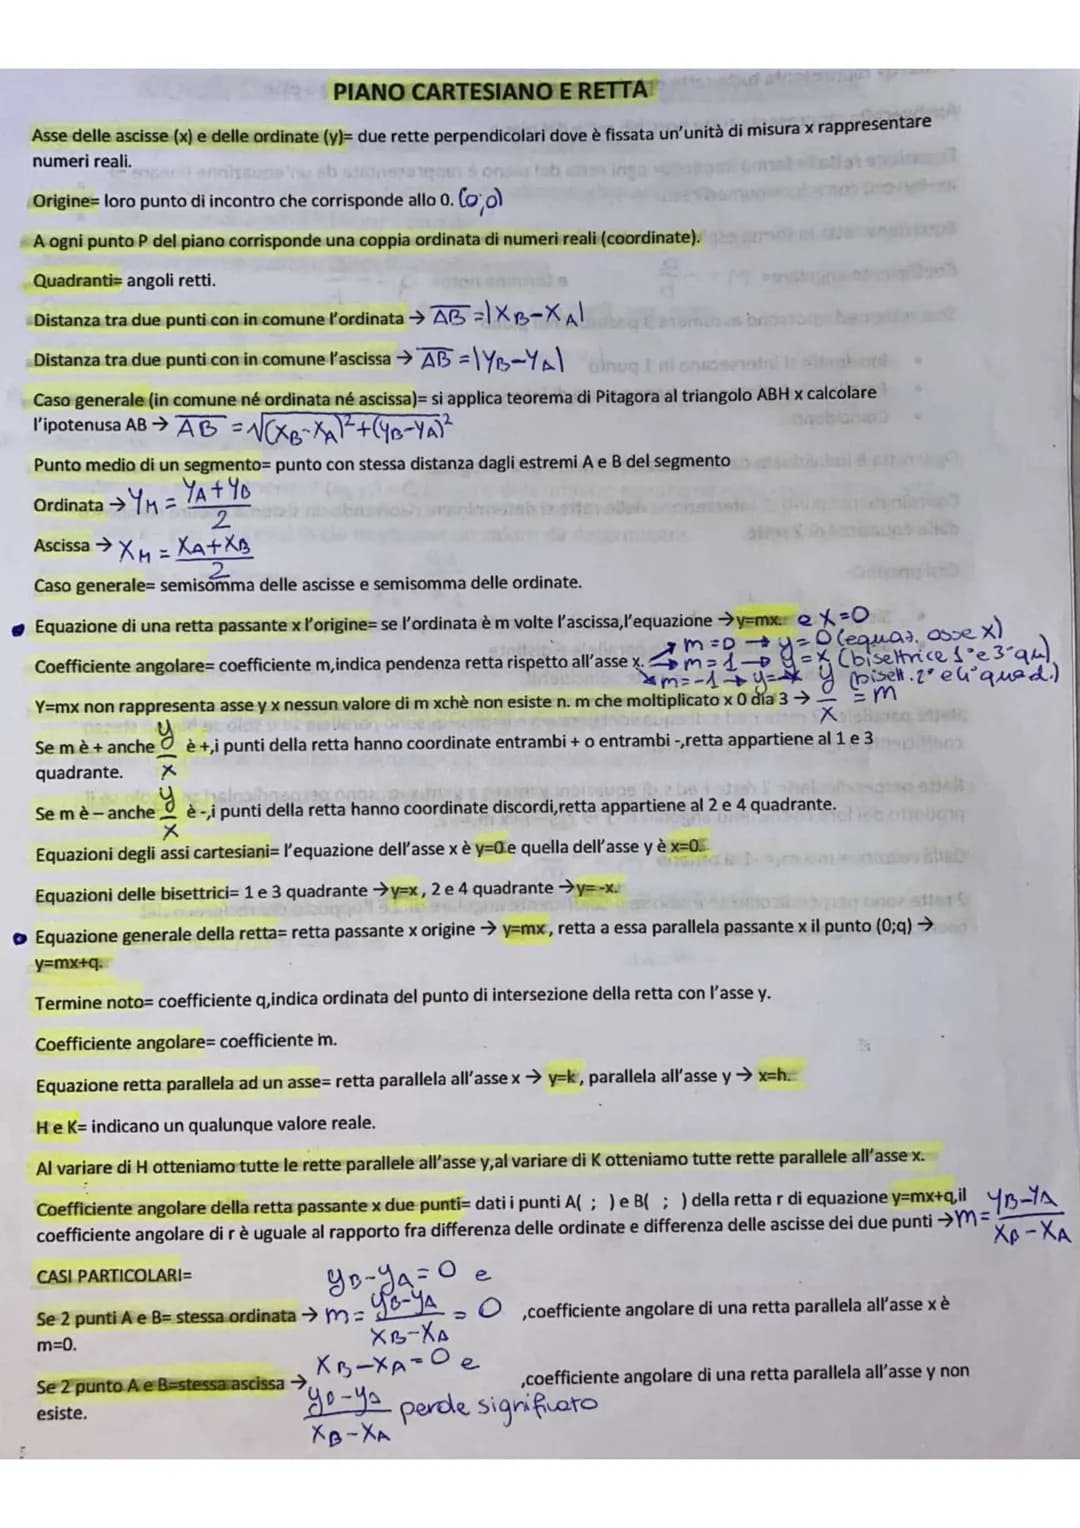 PIANO CARTESIANO E RETTA
Asse delle ascisse (x) e delle ordinate (y)= due rette perpendicolari dove è fissata un'unità di misura x rappresentare
numeri reali.
Origine= loro punto di incontro che corrisponde allo 0. (0;0)
A ogni punto P del piano corrisponde una coppia ordinata di numeri reali (coordinate).
Quadranti= angoli retti.
Distanza tra due punti con in comune l'ordinata → AB =|XB-XA|
Distanza tra due punti con in comune l'ascissa → AB =|YB-YA|
Caso generale (in comune né ordinata né ascissa)= si applica teorema di Pitagora al triangolo ABH x calcolare
l'ipotenusa AB → AB =√(XB-XA)²+(YB-YA)²
Punto medio di un segmento= punto con stessa distanza dagli estremi A e B del segmento
Ordinata → YM = YA+YB
2
Ascissa → XM = XA+XB
2
Caso generale= semisomma delle ascisse e semisomma delle ordinate.
Equazione di una retta passante x l'origine= se l'ordinata è m volte l'ascissa,l'equazione →y=mx. e X=0
m=0 → y=0 (equaz. asse x)
Coefficiente angolare= coefficiente m,indica pendenza retta rispetto all'asse x. m=1 → y=x (bisettrice 1°e3°qu)
m=-1 → y=-x (bisett.2° e4°quad.)
Y=mx non rappresenta asse y x nessun valore di m xchè non esiste n. m che moltiplicato x 0 dia 3 → y = m
x
Se m è + anche y è +,i punti della retta hanno coordinate entrambi + o entrambi -,retta appartiene al 1 e 3
quadrante. x
Se m è – anche y è -,i punti della retta hanno coordinate discordi,retta appartiene al 2 e 4 quadrante.
x
Equazioni degli assi cartesiani= l'equazione dell'asse x è y=0 e quella dell'asse y è x=0.
Equazioni delle bisettrici= 1 e 3 quadrante →y=x , 2 e 4 quadrante →y= -x.
Equazione generale della retta= retta passante x origine → y=mx , retta a essa parallela passante x il punto (0;q) →
y=mx+q.
Termine noto= coefficiente q,indica ordinata del punto di intersezione della retta con l'asse y.
Coefficiente angolare= coefficiente m.
Equazione retta parallela ad un asse= retta parallela all'asse x → y=k , parallela all'asse y → x=h.
H e K= indicano un qualunque valore reale.
Al variare di H otteniamo tutte le rette parallele all'asse y,al variare di K otteniamo tutte rette parallele all'asse x.
Coefficiente angolare della retta passante x due punti= dati i punti A( ; ) e B( ; ) della retta r di equazione y=mx+q,il
coefficiente angolare di r è uguale al rapporto fra differenza delle ordinate e differenza delle ascisse dei due punti →m= YB-YA
XB-XA
CASI PARTICOLARI=
yB-yA=0 e
Se 2 punti A e B= stessa ordinata → m= yB-yA = 0 ,coefficiente angolare di una retta parallela all'asse x è
XB-XA
m=0.
XB-XA=0 e
Se 2 punto A e B=stessa ascissa → ,coefficiente angolare di una retta parallela all'asse y non
esiste.
yB-yA perde significato
XB-XA